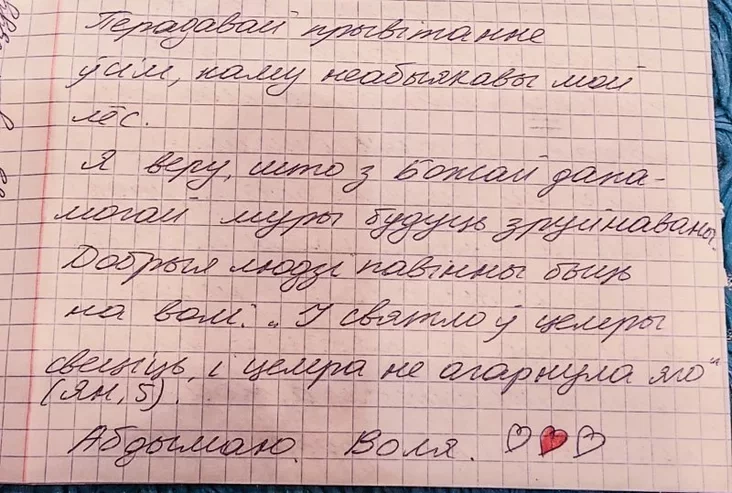 Перадавай прывітанне
ўсім, каму неабыякавы мой
лёс.
Я веру, што з Божай дапа-
могай муры будуць зруйнаваны.
Добрыя людзі павінны быць
на волі. „І святло ў цемры
свеціць, і цемра не агарнула яго“
(Ян, 5).
Абдымаю. Воля.